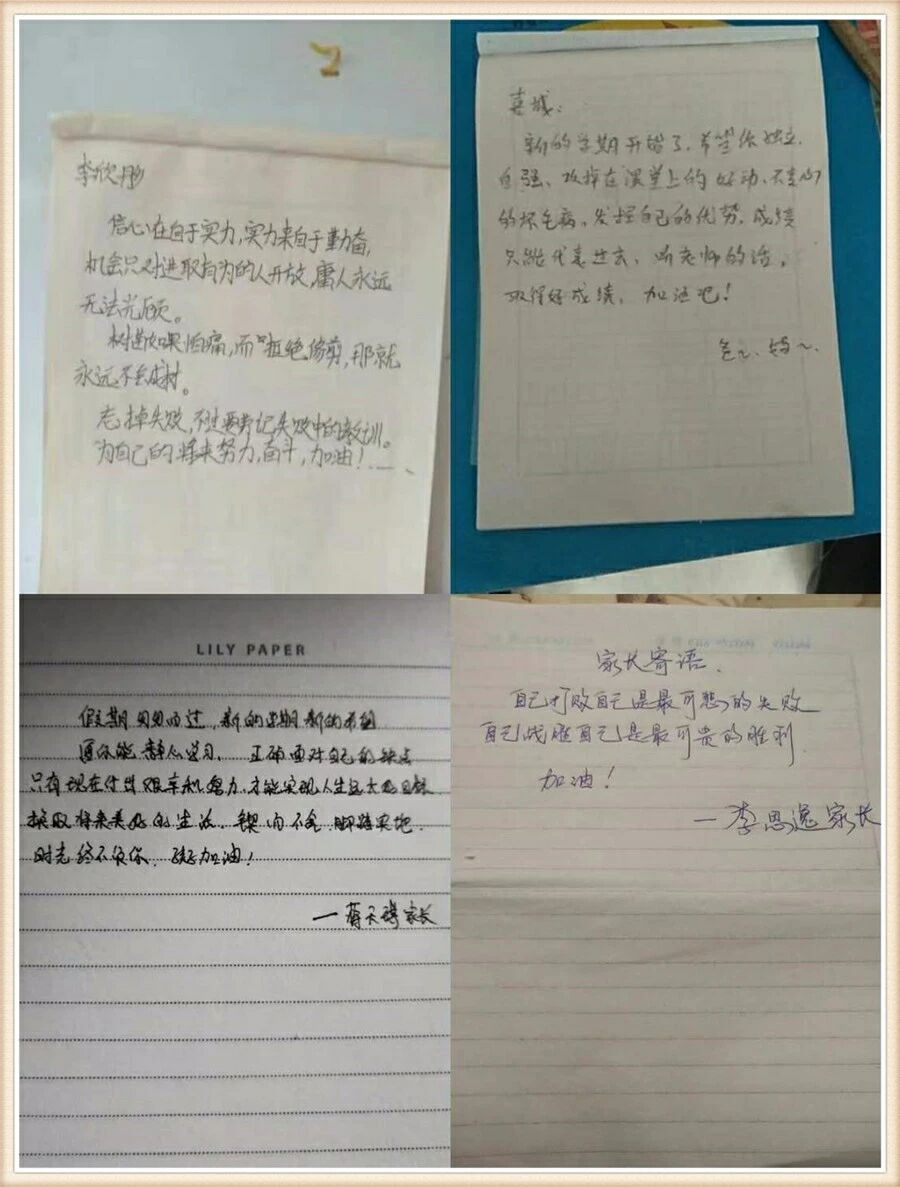 李欣彤
信心在自于实力,实力来自于勤奋,
机会只对进取有为的人开放,庸人永远
无法光顾。
树苗如果怕痛,而拒绝修剪,那就
永远不会成材。
忘掉失败,不过要牢记失败中的教训。
为自己的将来努力,奋斗,加油!
喜城:
新的学期开始了,希望你独立、
自强、改掉在课堂上的好动、不专心
的坏毛病,发挥自己的优势,成绩
只能代表过去,听老师的话,
取得好成绩,加油吧!
爸~、妈~
LILY PAPER
假期匆匆而过,新的学期新的希望
愿你能静心学习,正确面对自己的缺点
只有现在付出艰辛和努力,才能实现人生远大的目标
换取将来美好的生活,锲而不舍,脚踏实地,
时光终不负你,加油!
一蒋天 家长
家长寄语、
自己打败自己是最可悲的失败
自己战胜自己是最可贵的胜利
加油!
一李思逸家长